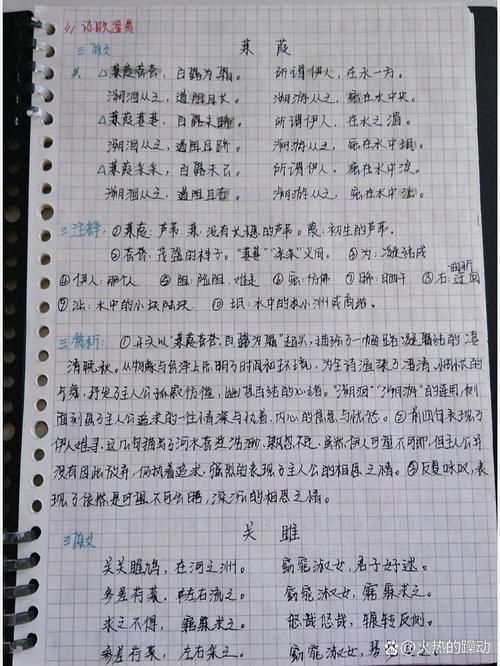 11 诗歌鉴赏
三原文 蒹葭
△蒹葭苍苍，白露为霜。 所谓伊人，在水一方。
溯洄从之，道阻且长。 溯游从之，宛在水中央。
△蒹葭萋萋，白露未晞。 所谓伊人，在水之湄。
溯洄从之，道阻且跻。 溯游从之，宛在水中坻。
△蒹葭采采，白露未已。 所谓伊人，在水中涘。
溯洄从之，道阻且右。 溯游从之，宛在水中沚。
三注释：①蒹葭：芦苇。蒹，没有长穗的芦苇。葭：初生的芦苇。
②苍苍：茂盛的样子。"萋萋""采采"义同。 ③为：凝结成
④伊人：那个人 ⑤阻：险阻，难走 ⑥宛：仿佛 ⑦晞：晒干 ⑧右：迂回
曲折
⑨沚：水中的小块陆块 ⑩坻：水中的小洲或高地。
三赏析：①开头以"蒹葭苍苍，白露为霜"起兴，描绘了一幅露凝霜结的凄
清晚秋。从物象与色泽上点明了时间和环境，为全诗渲染了凄清、惆怅的
气氛，抒发了主人公孤寂彷徨，幽思百结的心绪。"溯洄""溯游"的运用，侧
面刻画了主人公追求的一往情深与执着、内心的焦急与忧愁。②前四句表现了
伊人难寻，这几句描写了河水苍茫浩渺，期盼不见，虽然伊人可望不可即，但主人公并
没有因此放弃，仍执着追求，强烈的表现了主人公的相思之情。③反复咏叹，表
现了依然是可望不可企及，深沉的相思之情。
三原文 关雎
关关雎鸠，在河之洲。 窈窕淑女，君子好逑。
参差荇菜，左右流之。 窈窕淑女，寤寐求之。
求之不得，寤寐思服。 悠哉悠哉，辗转反侧。
参差荇菜，左右采之。 窈窕淑女，琴
火热的躁动